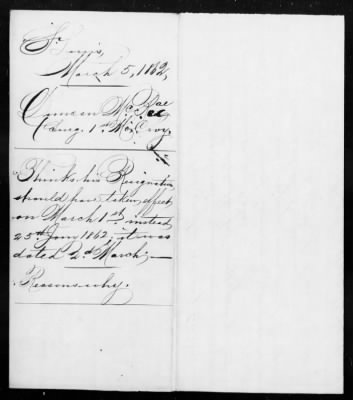 St Louis,
March 5, 1862,
Duncan McRae
1st Mo
Thinks his Resignation
should have taken effect
on March 1st instead
25th Jany 1862, it was
dated 2d March,—
Reasons why.